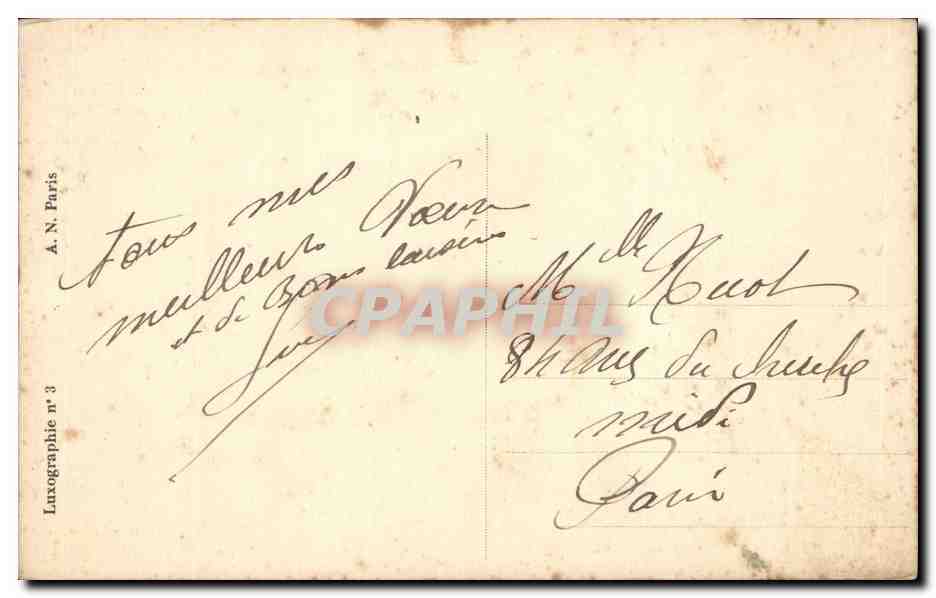 A. N. Paris
Luxographie n° 3
Tous mes
meilleurs Vœux
et de Bons baisers
Mlle Huot
84 rue du cherche
midi
Paris
CPAPHIL